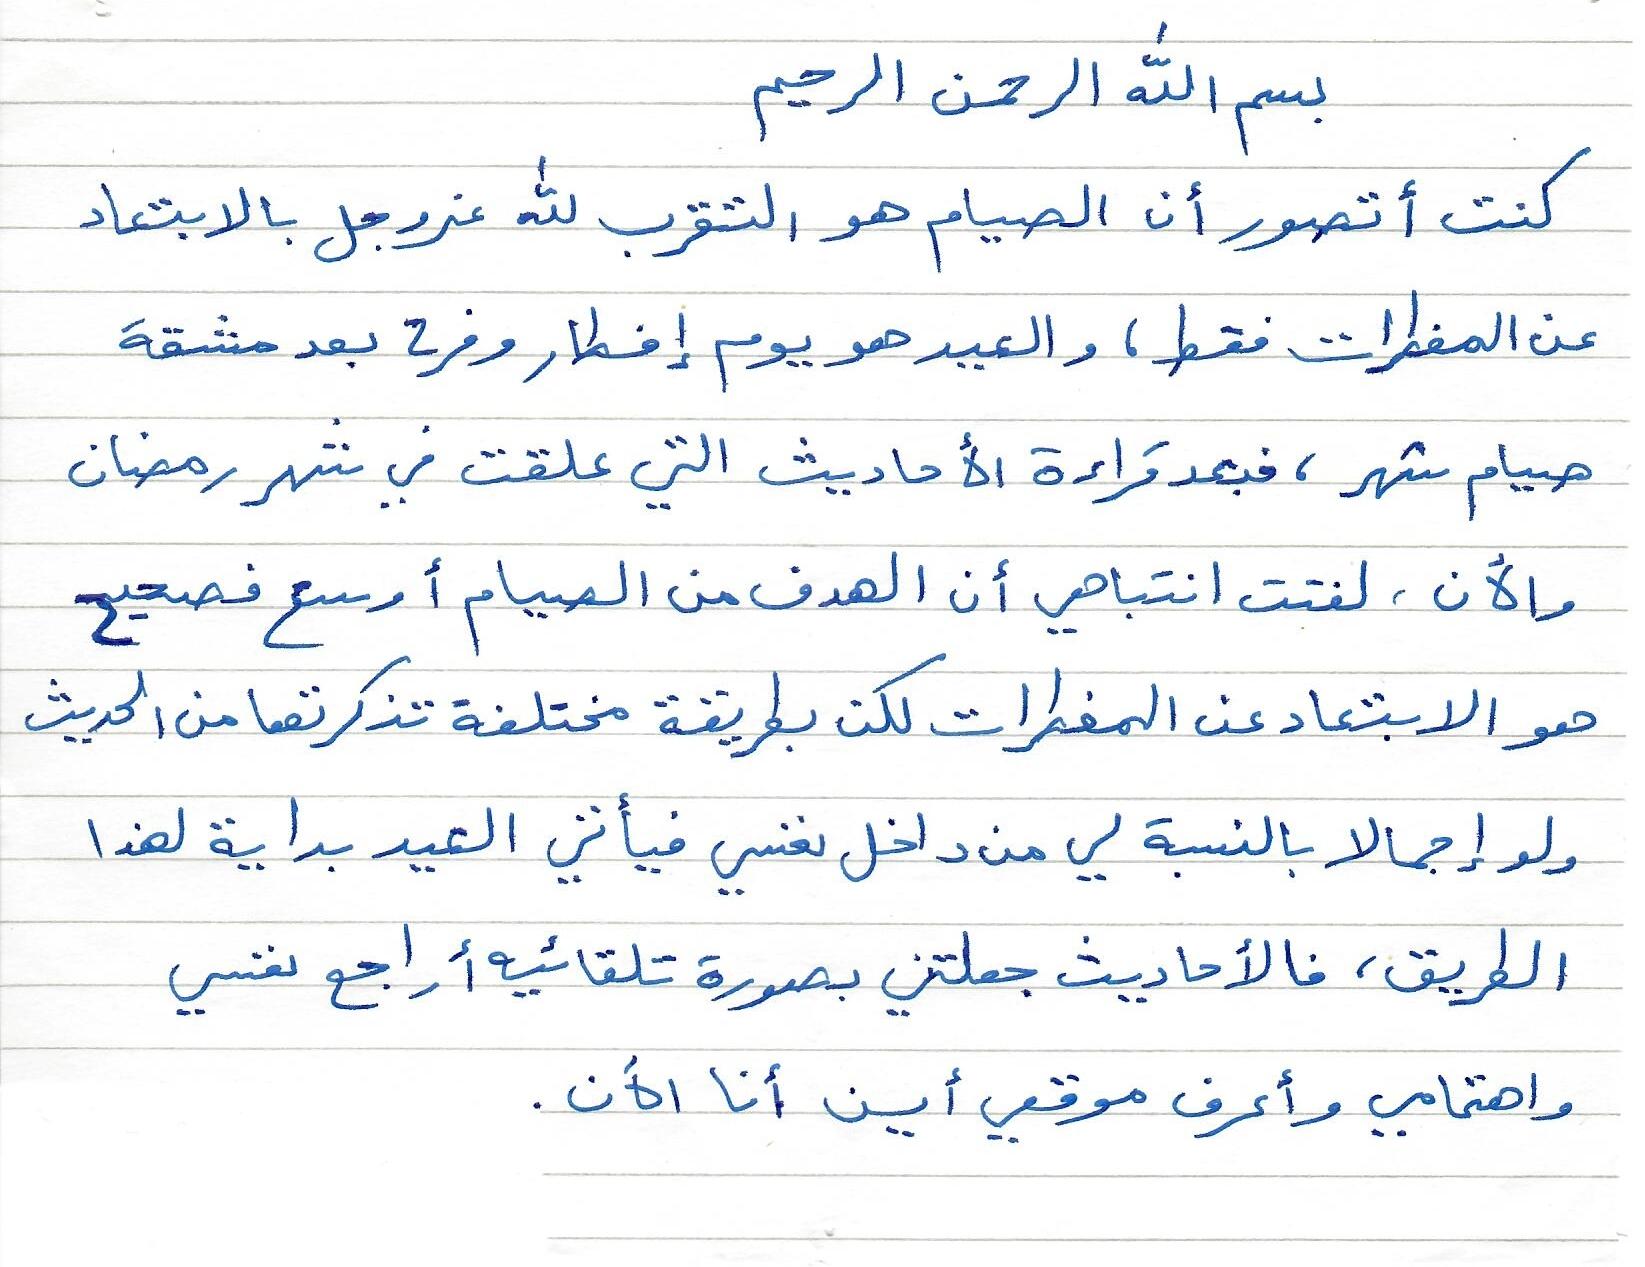 بسم الله الرحمن الرحيم
كنت أتصور أن الصيام هو التقرب لله عز وجل بالابتعاد
عن المفطرات فقط، والعيد هو يوم إفطار وفرح بعد مشقة
صيام شهر، فبعد قراءة الأحاديث التي علقت في شهر رمضان
والأن، لفتت انتباهي أن الهدف من الصيام أوسع فصحيح
هو الابتعاد عن المفطرات لكن بطريقة مختلفة تذكرتها من الحديث
ولو إجمالا بالنسبة لي من داخل نفسي فيأتي العيد بداية لهذا
الطريق، فالأحاديث جعلتني بصورة تلقائيه أراجع نفسي
واهتمامي وأعرف موقعي أين أنا الأن.